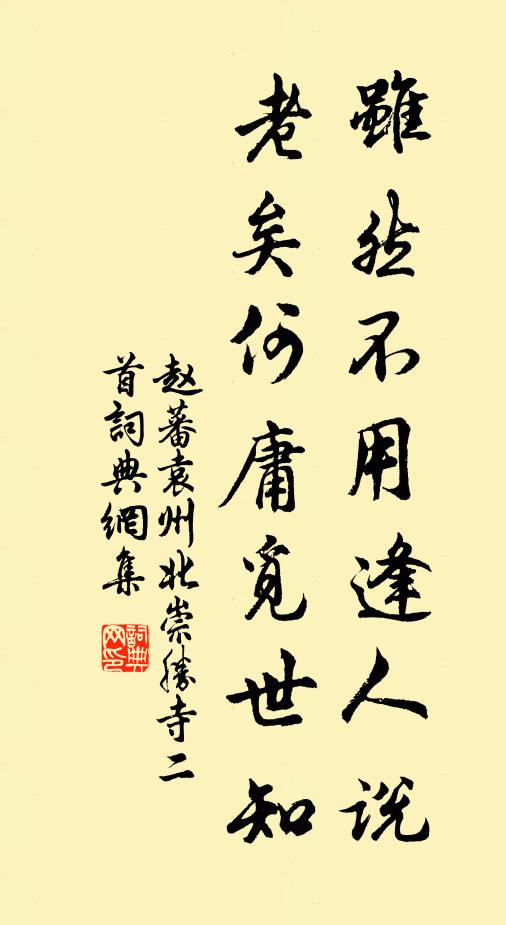 雖然不用逢人说
老矣何庸覓世知
赵蕃袁州北崇勝寺二
首詞典網集
詞典
网印